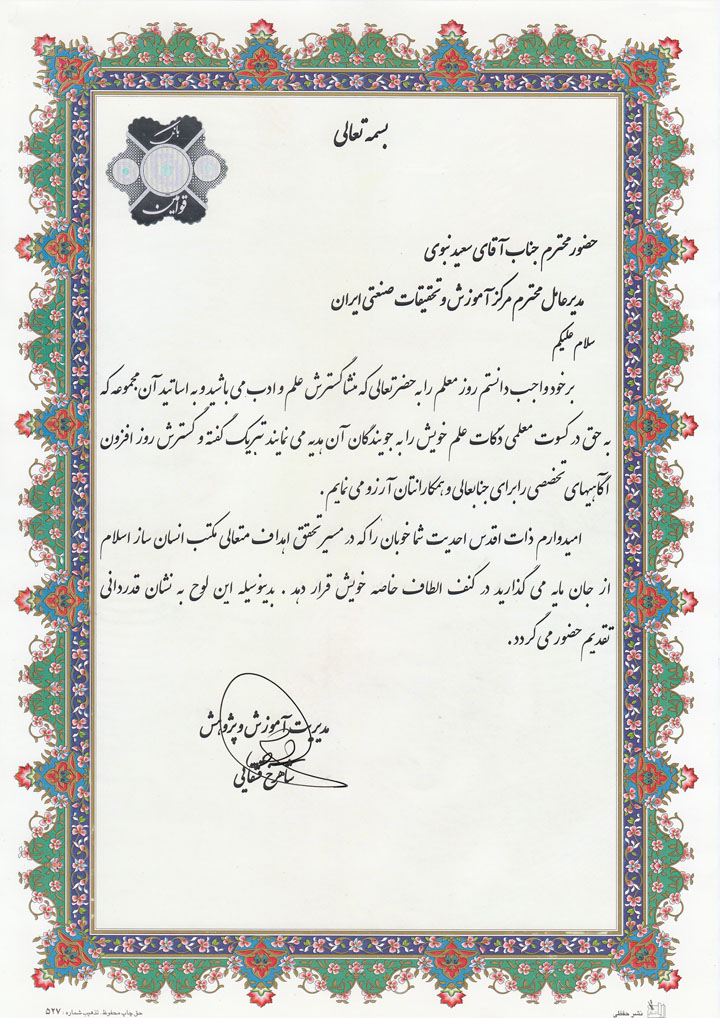 بسمه تعالی
بانک
قوامین
حضور محترم جناب آقای سعید نبوی
مدیر عامل محترم مرکز آموزش و تحقیقات صنعتی ایران
سلام علیکم
بر خود واجب دانستم روز معلم را به حضرتعالی که منشأ گسترش علم و ادب می باشید و به اساتید آن مجموعه که
به حق در کسوت معلمی ذکات علم خویش را به جویندگان آن هدیه می نمایند تبریک گفته و گسترش روز افزون
آگاهیهای تخصصی را برای جنابعالی و همکارانتان آرزو می نمایم .
امیدوارم ذات اقدس احدیت شما خوبان را که در مسیر تحقق اهداف متعالی مکتب انسان ساز اسلام
از جان مایه می گذارید در کنف الطاف خاصه خویش قرار دهد . بدینوسیله این لوح به نشان قدردانی
تقدیم حضور می گردد .
مدیریت آموزش و پژوهش
شاهرخ قشقائی
نشر حفظی
حق چاپ محفوظ. تذهیب شماره : ۵۲۷